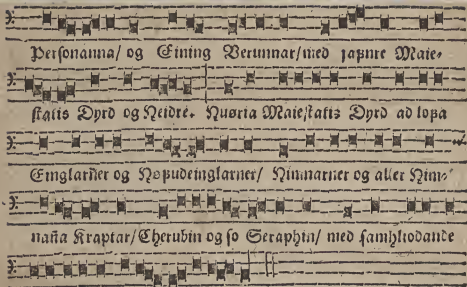 Personanna/ og Eining Verunnar/ med jafnre Maie-
statis Dyrd og Heidre. Huøria Maiestatis Dyrd ad lofa
Einglarner og Høfudeinglarner/ Himnarner og aller Him-
nana Kraptar/ Cherubin og so Seraphin/ med samhliodande